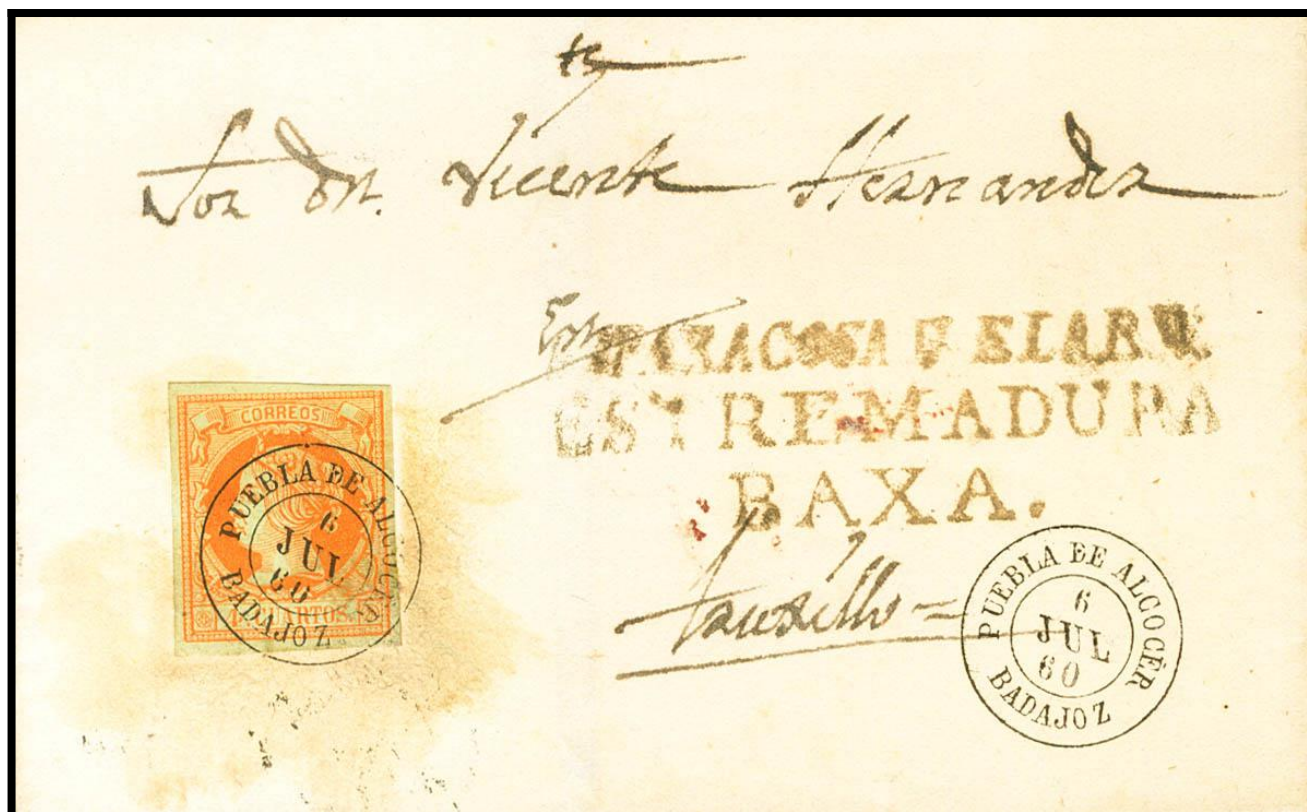 Sor Dn. Vicente Hernandez
ESTREMADURA
BAXA.
CORREOS
PUEBLA DE ALCOCÉR
6
JUL
60
BADAJOZ
CUARTOS
PUEBLA DE ALCOCÉR
6
JUL
60
BADAJOZ